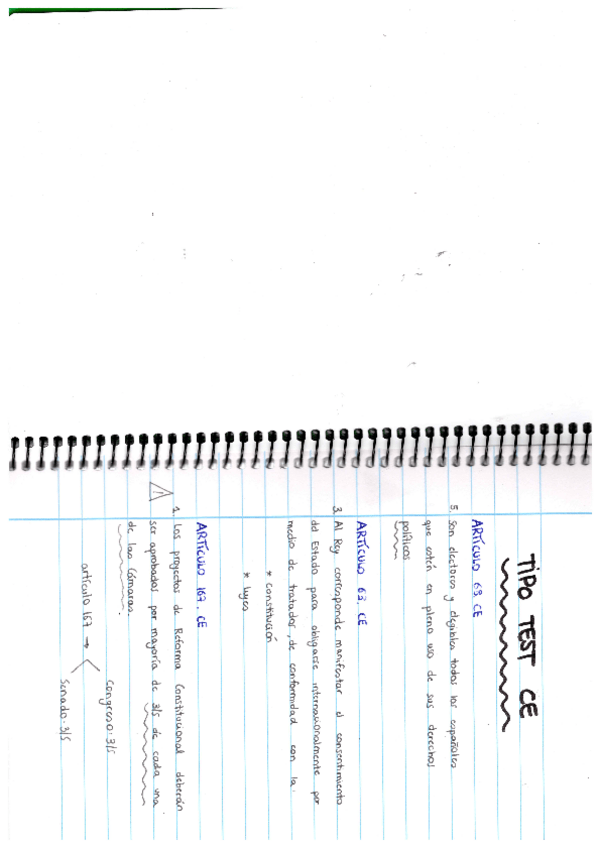 TIPO TEST CE
ARTÍCULO 68. CE
5. Son electores y elegibles todos los españoles
que estén en pleno uso de sus derechos
políticos
ARTÍCULO 63. CE
3. Al Rey corresponde manifestar el consentimiento
del Estado para obligarse internacionalmente por
medio de tratados, de conformidad con la.
* Constitución
* leyes
ARTÍCULO 167. CE
1. Los proyectos de Reforma Constitucional deberán
ser aprobados por mayoría de 3/5 de cada una
de las Cámaras.
artículo 167 →
Congreso: 3/5
Senado: 3/5